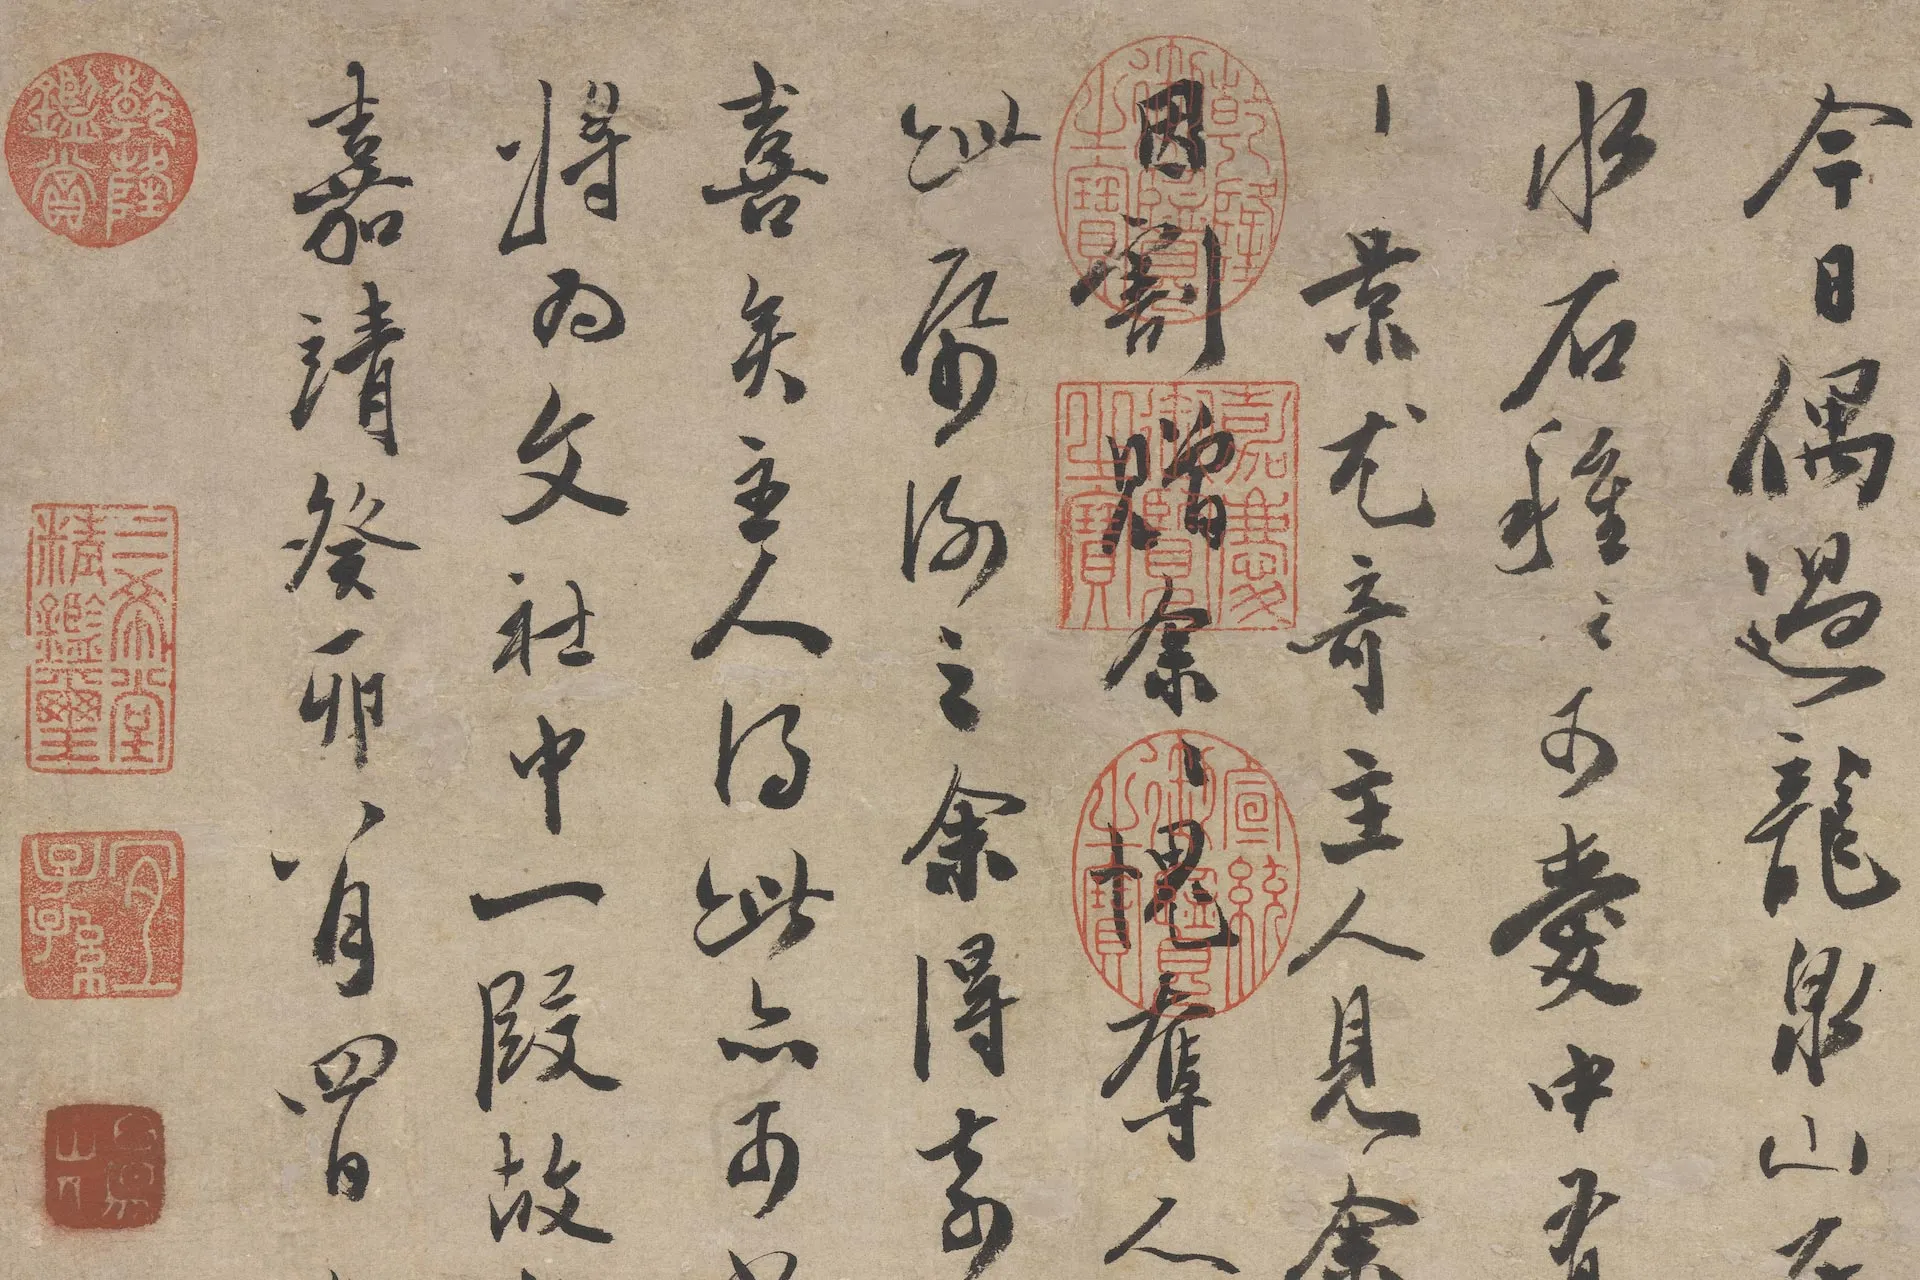 今日偶過龍泉山
水石種之可愛中有
景尤奇主人見余
因割贈余〻愧奪人
此之余得奇
喜矣主人得此亦可
将為文社中一段故
嘉靖癸卯八月四日
乾隆御覽之寶
嘉慶御覽之寶
宣統御鑑之寶
乾隆鑑賞
三希堂精鑑璽
宜子孫